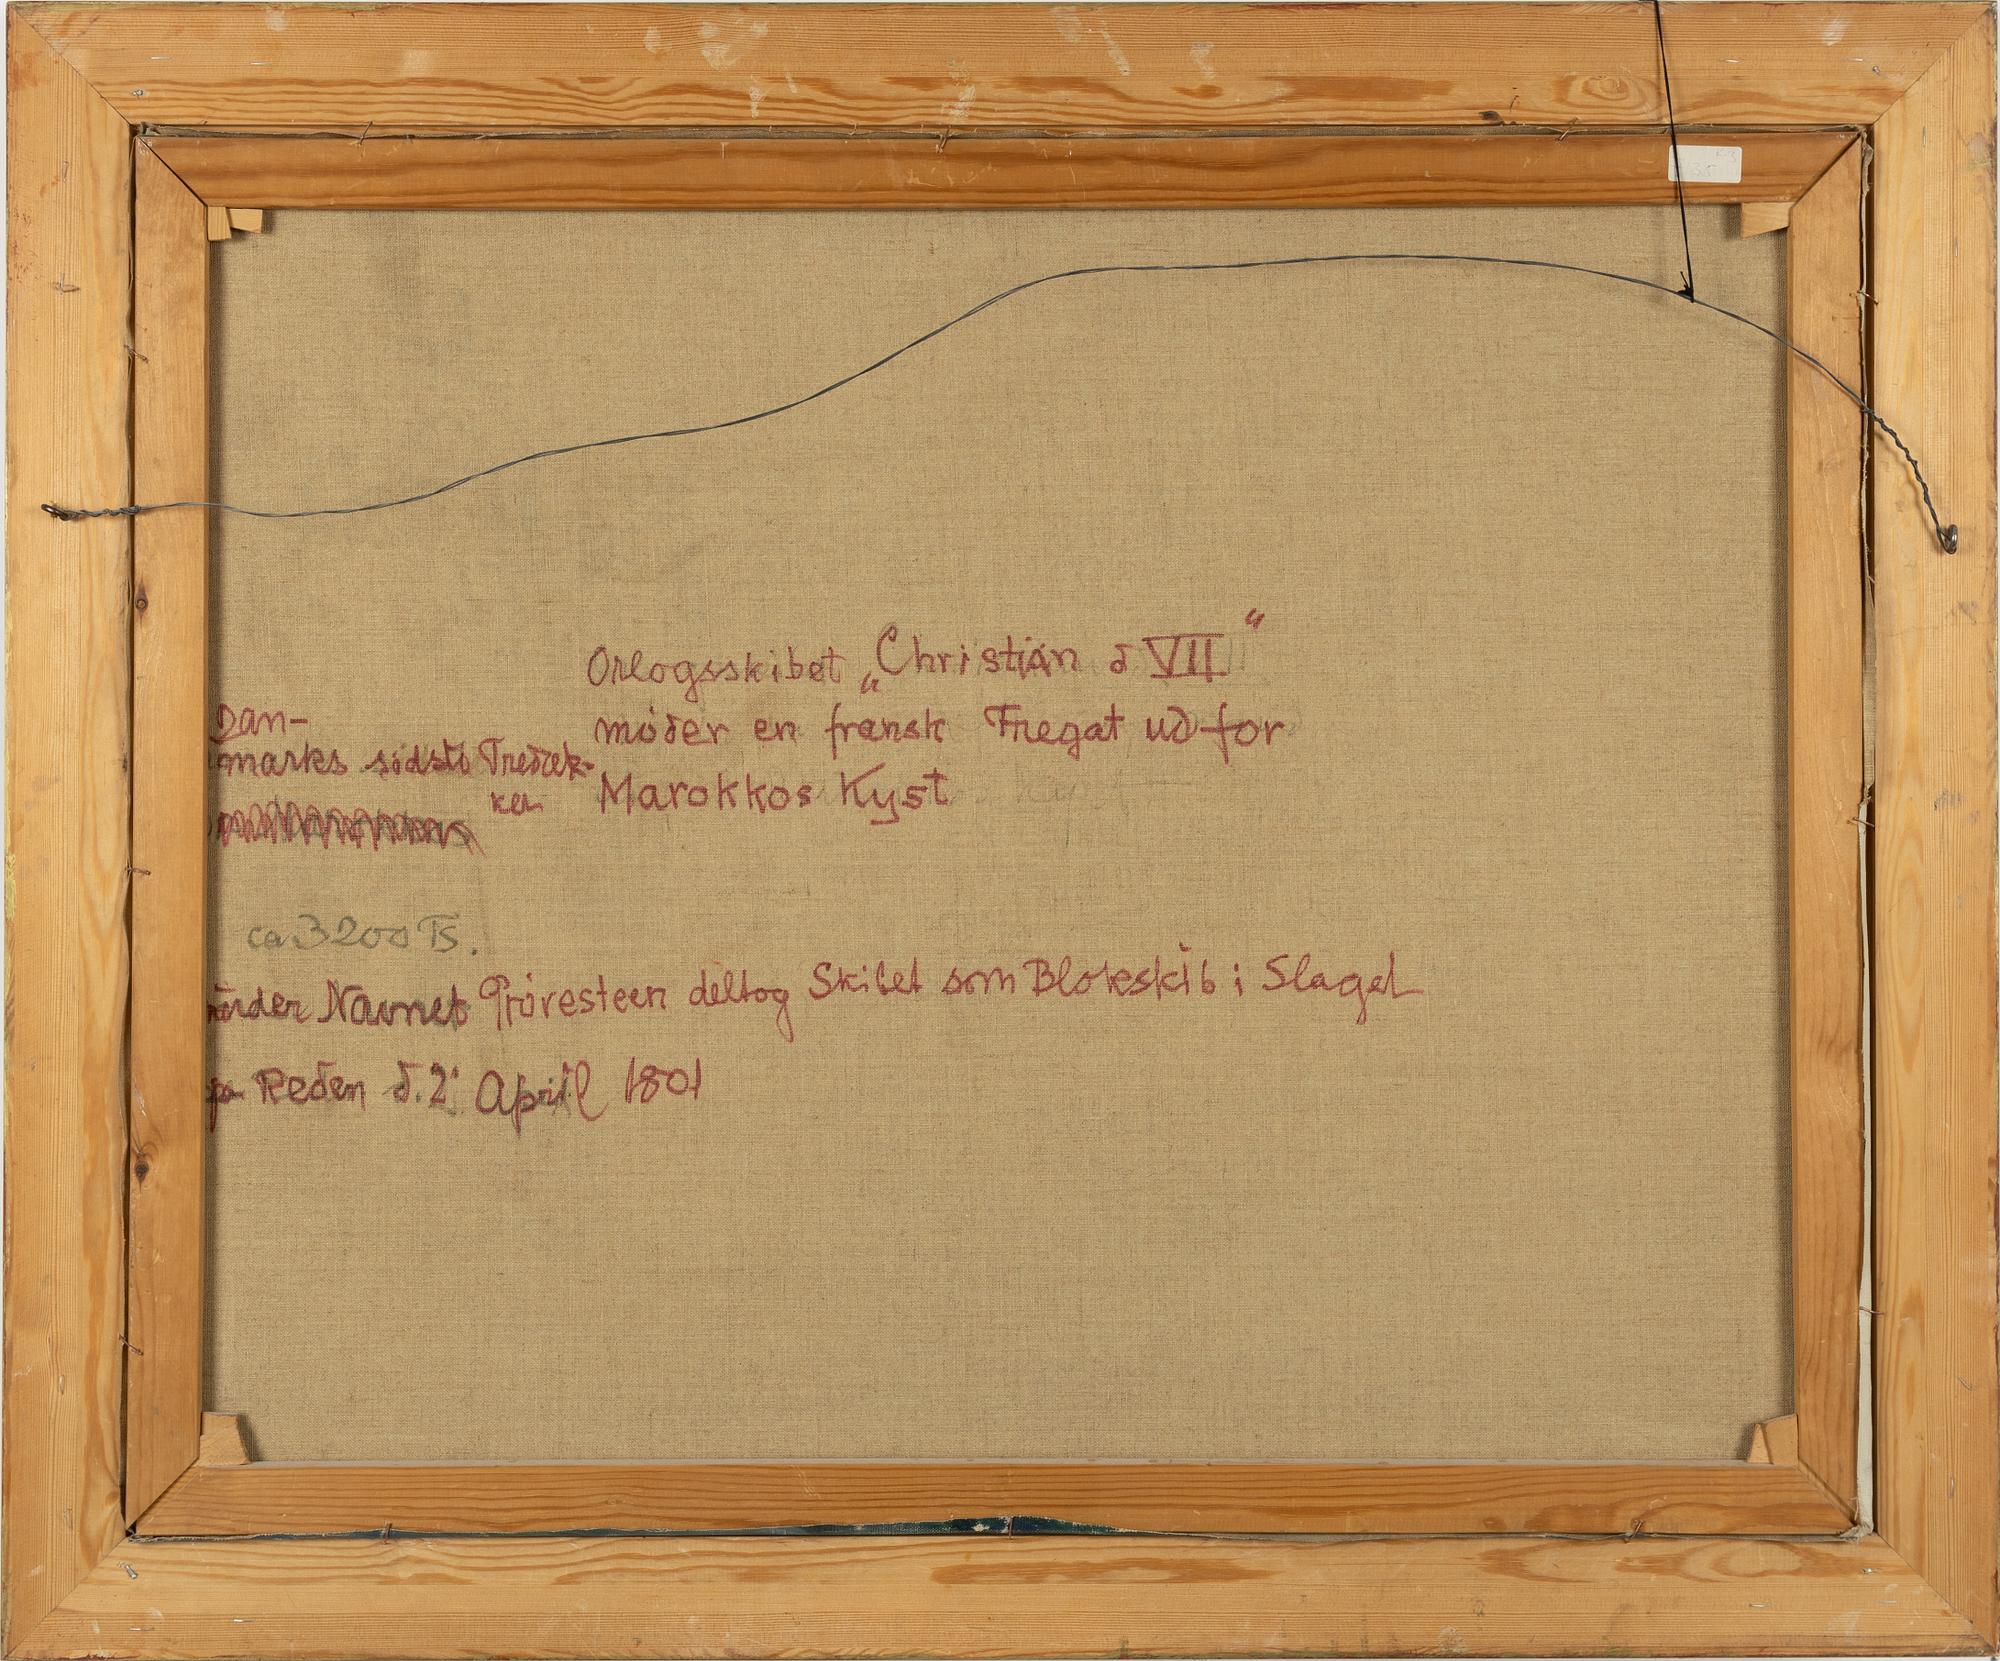 Orlogsskibet „Christian d VII“
møder en fransk Fregat ud for
Marokkos Kyst
Dan-
marks sidste Tredæk-
ker
ca 3200 Ts.
under Navnet Prøvesteen deltog Skibet som Blokskib i Slaget
på Reden d. 2' April 1801